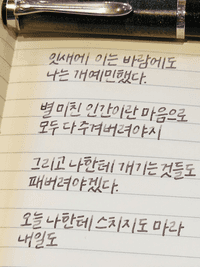 잇새에 이는 바람에도
나는 개예민했다.
별 미친 인간이란 마음으로
모두 다 주겨버려야지
그리고 나한테 개기는것들도
패버려야겠다.
오늘 나한테 스치지도 마라
내일도